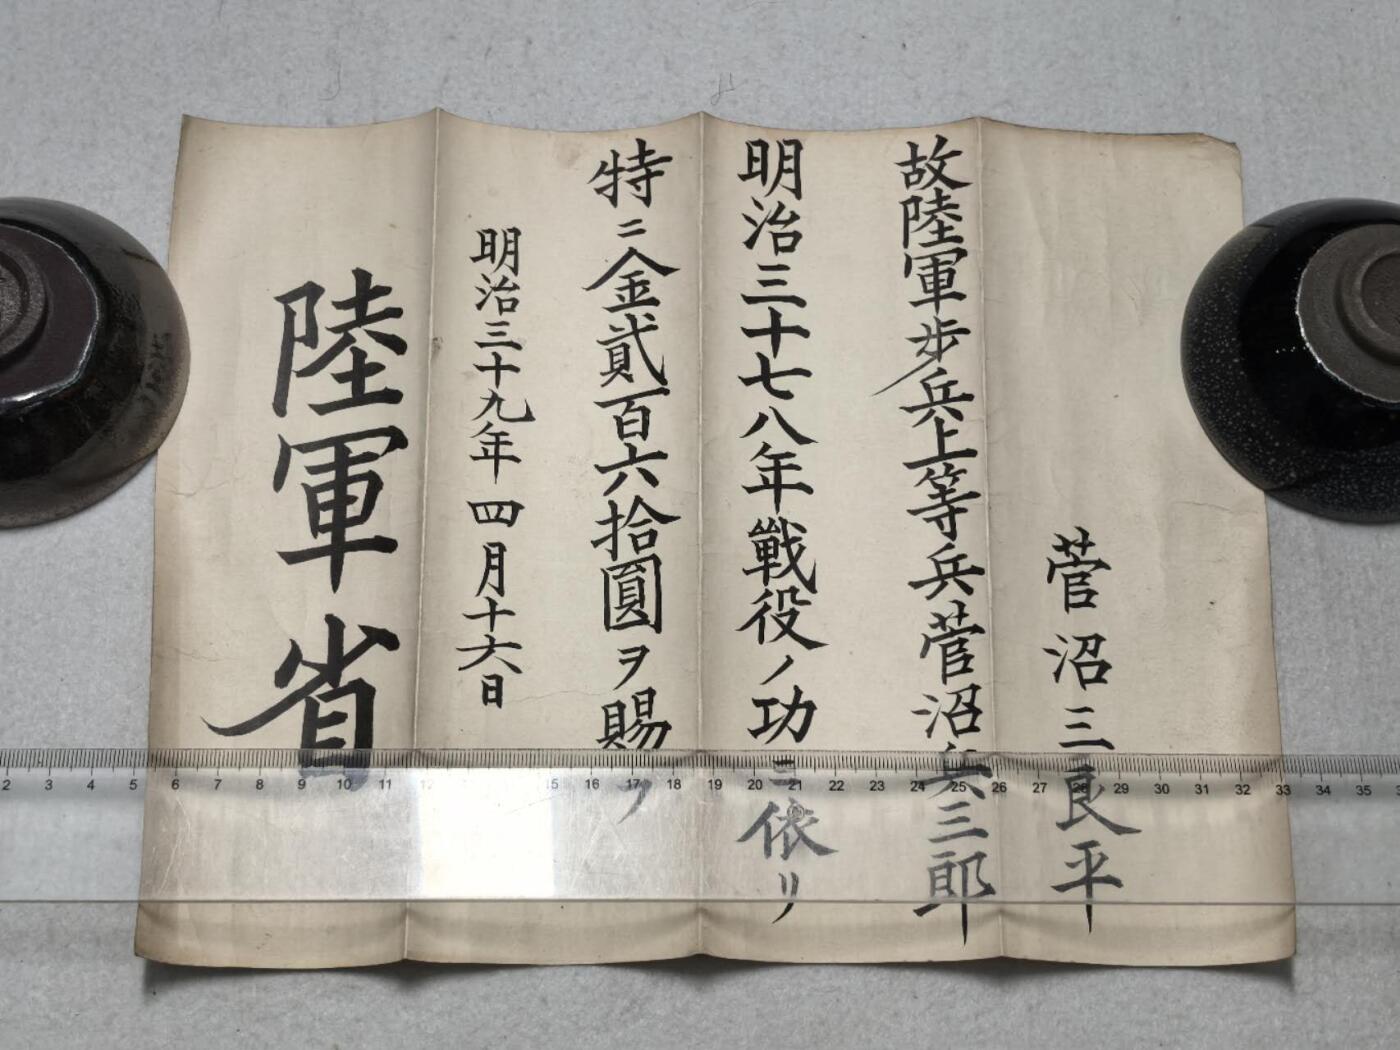 菅沼三良平
故陸軍歩兵上等兵菅沼兵三郎
明治三十七八年戦役ノ功ニ依リ
特ニ金貳百六拾圓ヲ賜フ
明治三十九年四月十六日
陸軍省
2 3 4 5 6 7 8 9 10 11 12 15 16 17 18 19 20 21 22 23 24 25 26 27 28 29 30 31 32 33 34 35